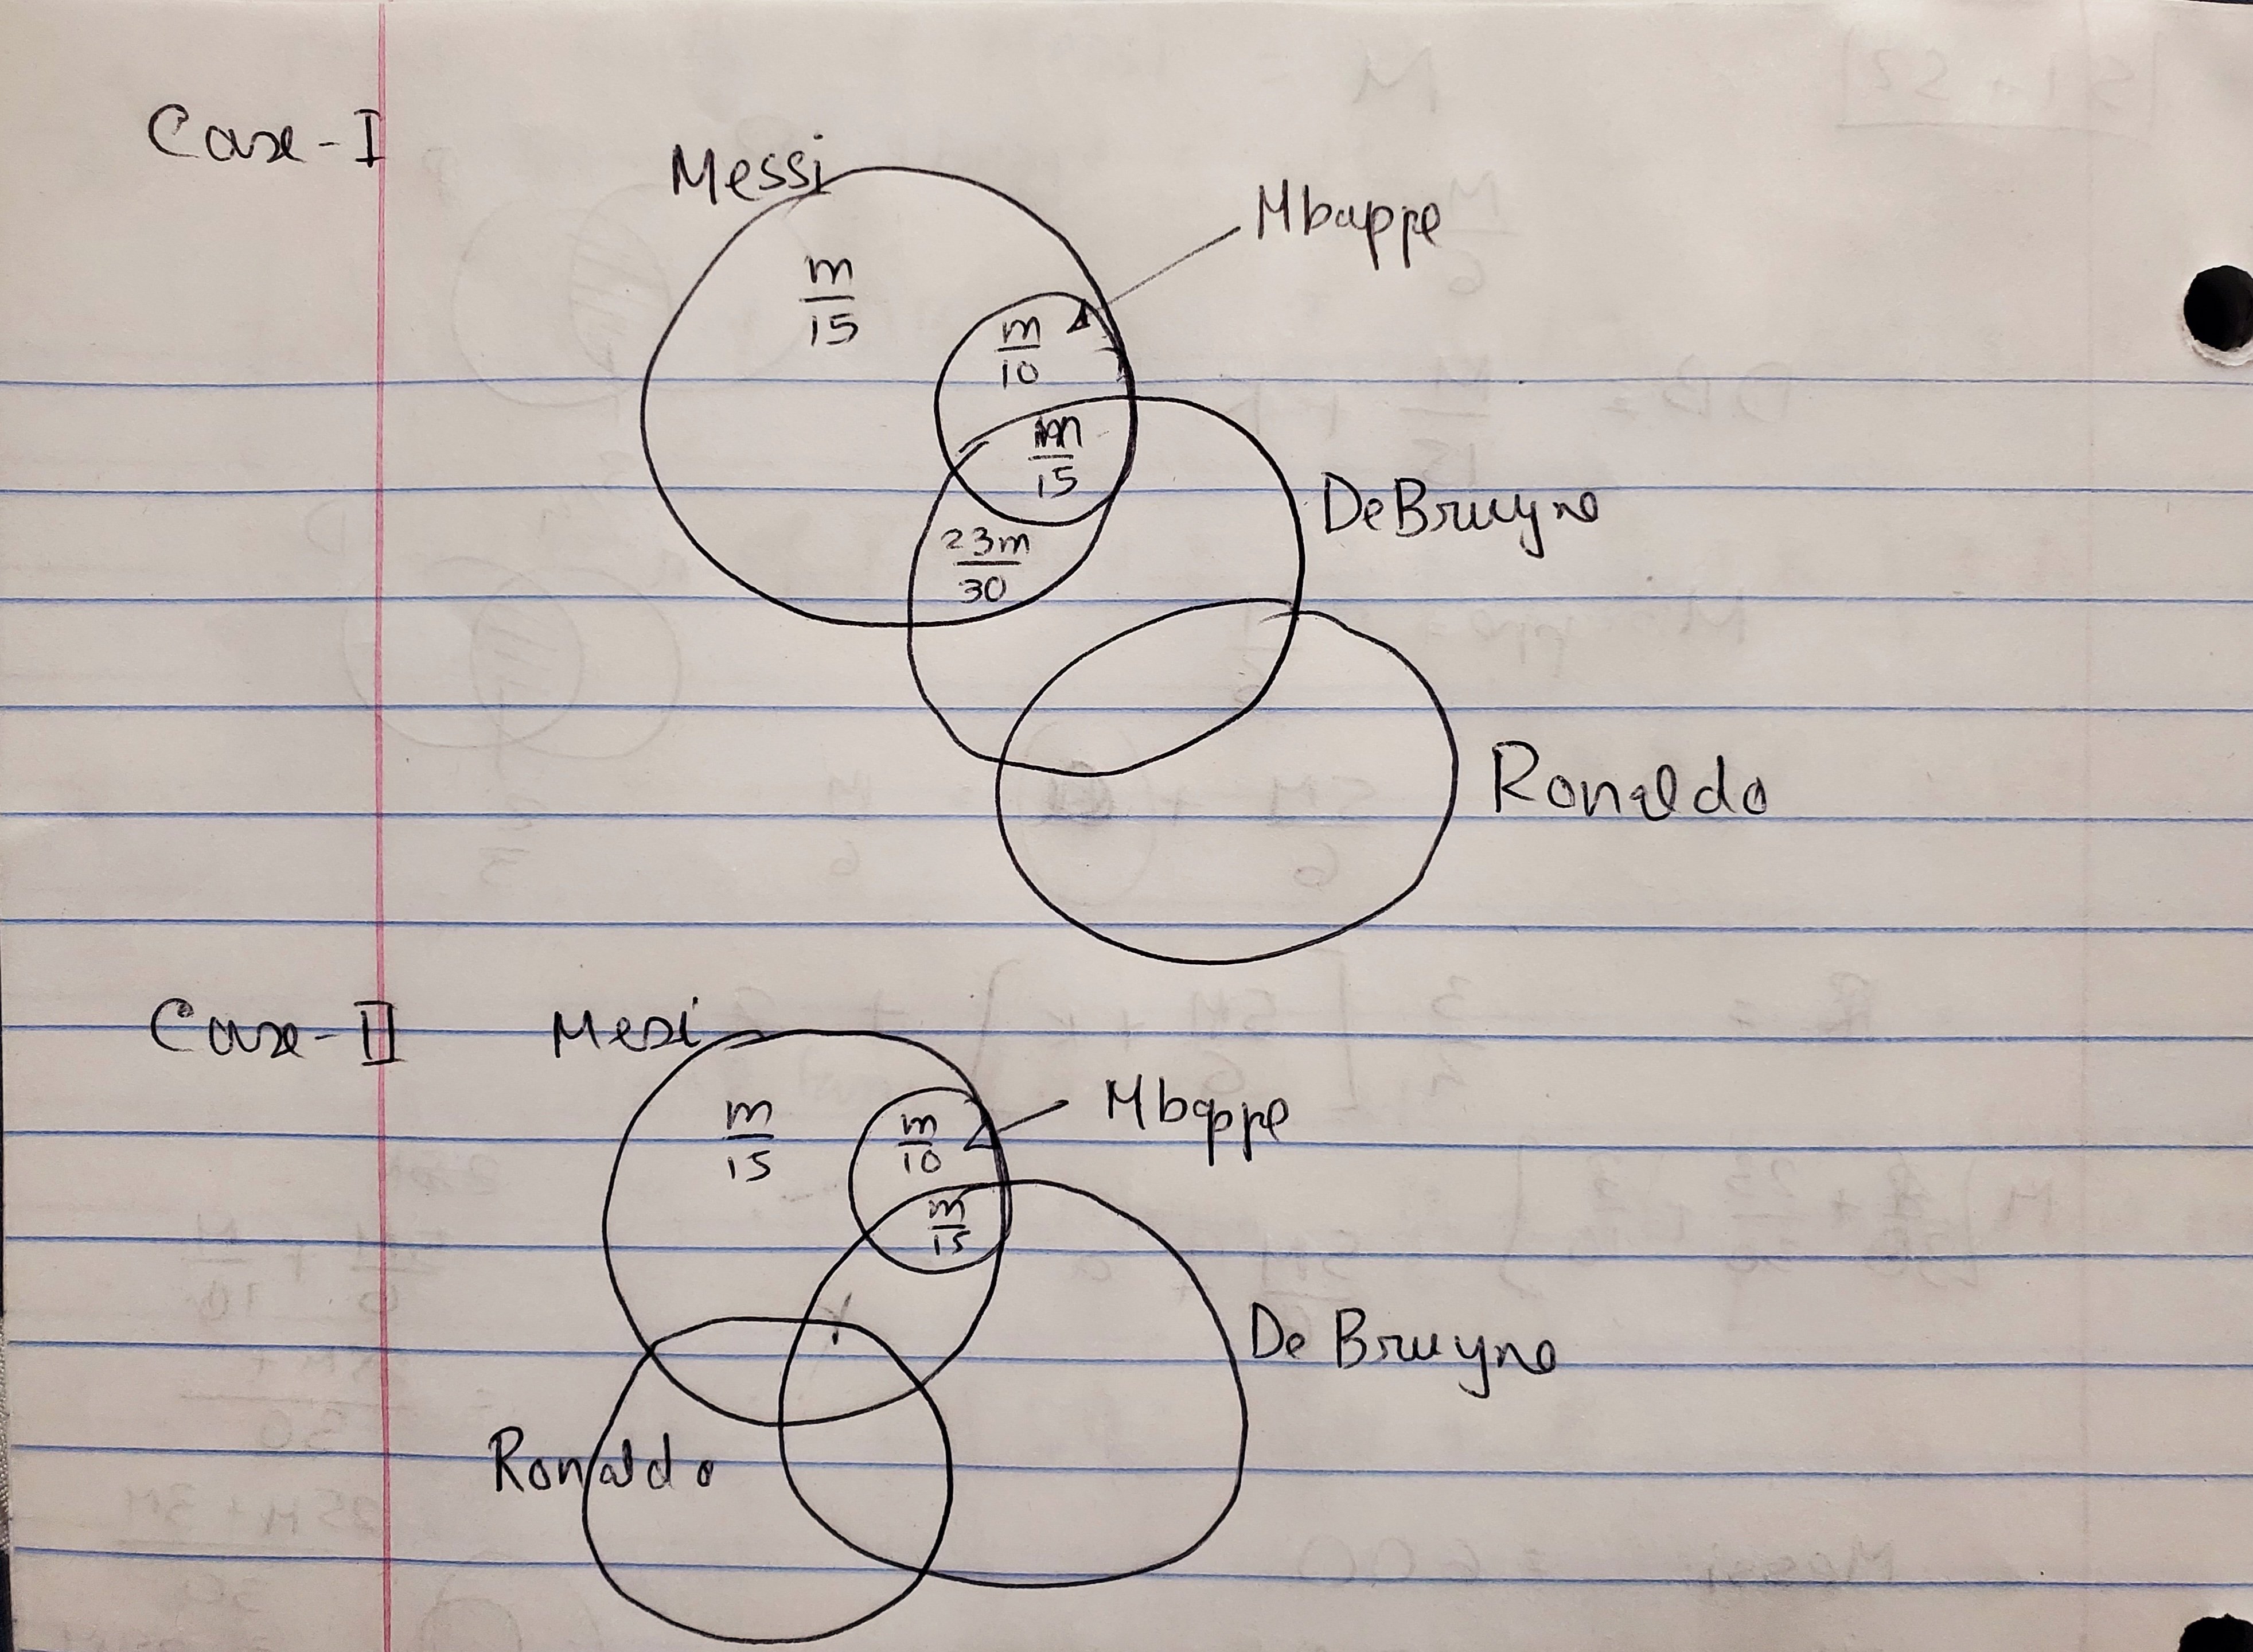 Case-I
Messi
Mbappe
m/15
m/10
m/15
DeBruyne
23m/30
Ronaldo
Case-II
Mesi
Mbappe
m/15
m/10
m/15
De Bruyne
Ronaldo